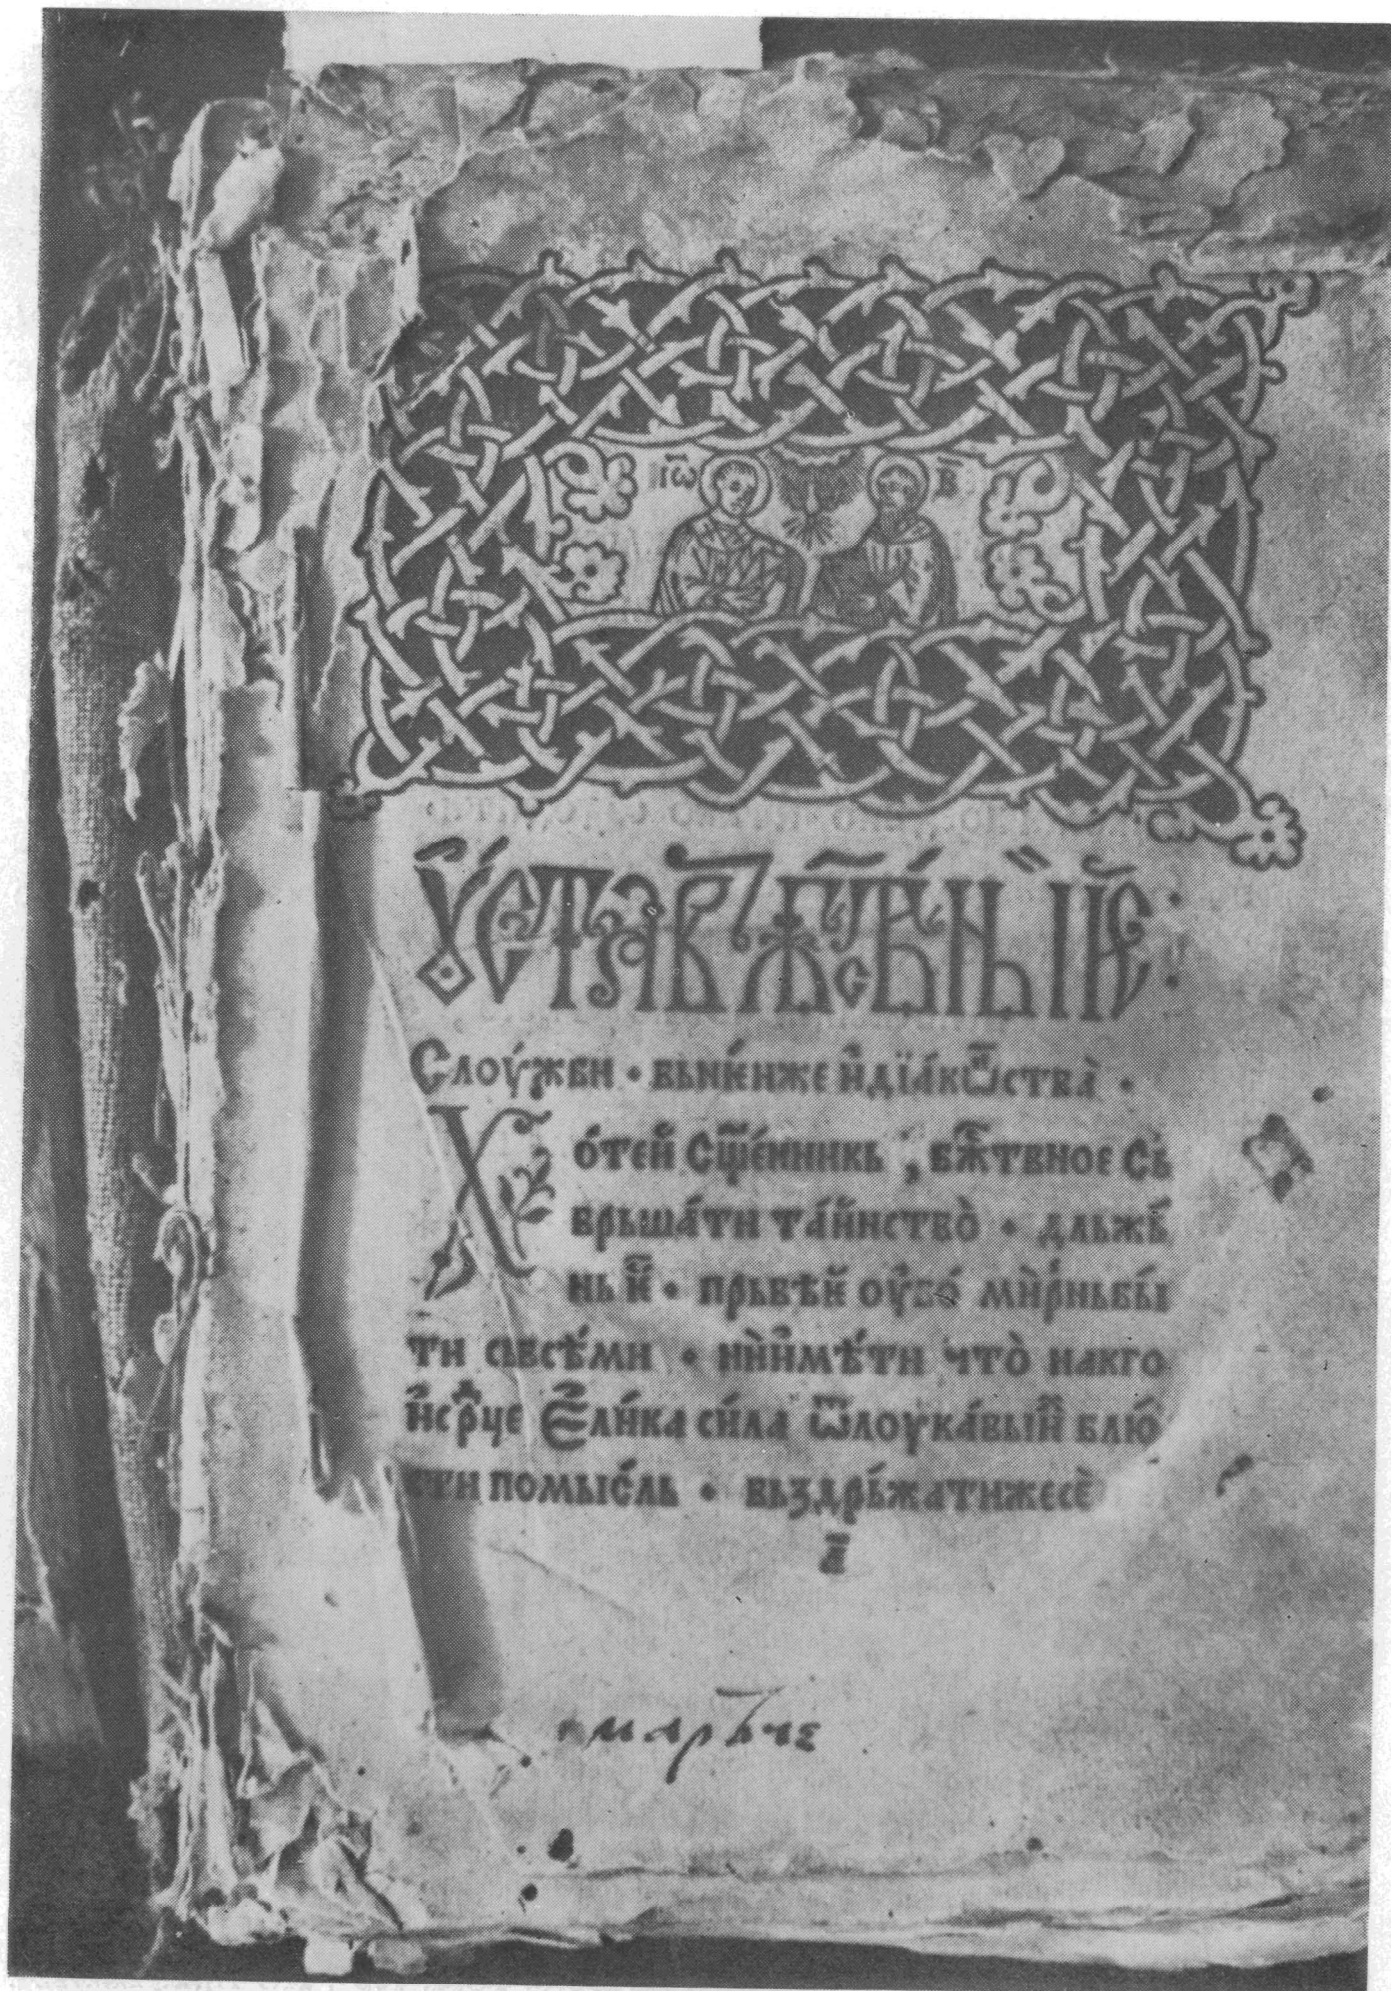 І҆ѡ҃ В҃
Ꙋ҆СТАВЬ БЖ҃СТВЕНЫЙЄ :
Слоу́жби • вьни́ѥнже и҆дїа́кѡ҃ства̀ •
Хо́тей Сщ҃е́нникь , бж҃твное Сь
врьша́ти та́инство̀ • дльжь́
нь и҆̃ • прьвѣй оу҆́бо́ ми́рньбы́
ти сьвсѣ́ми • ни҆и҆мѣ́ти что̀ накго
и҆ср҃це Е҆ли́ка си́ла ѿлоука́вый блю́
сти помы́сль • вьздрь́жатижесѐ
а҃